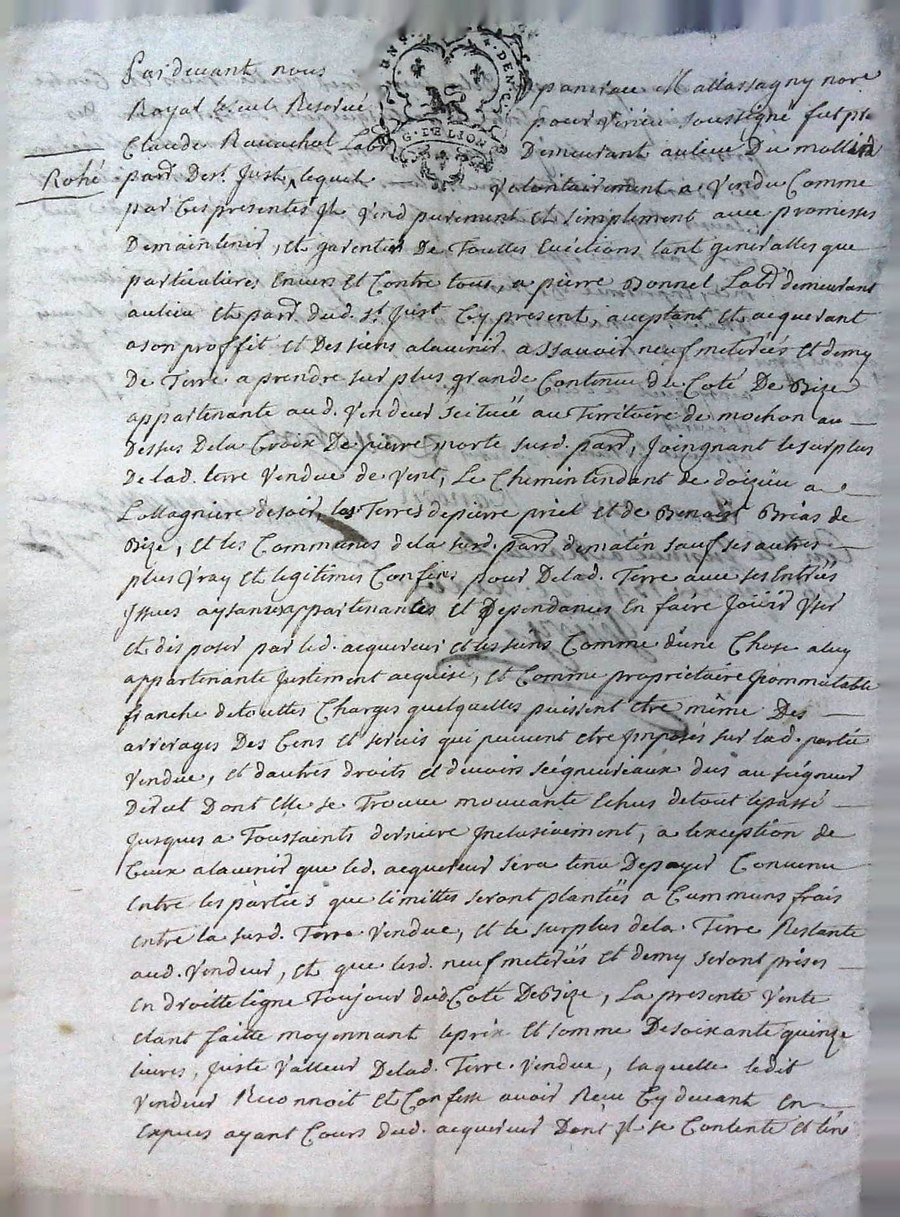 Pardevant nous pancrace Mallassagny nore
Royal et seul Reserué pour virieu soussigné fut pnt
Claude Rauachol Labr Demeurant au lieu Du mollin
Rohé
parr. De st. Just, lequel volontairement a Vendu Comme
par Ces presentes Jl Vend purement et simplement auec promesses
Demaintenir, et garentir De Touttes Euictions tant generalles que
particulieres enuers et Contre tous, a pierre Bonnel Labr demeurant
au lieu et parr. dud. st. Just Cy present, aceptant et acquerant
a son proffit et Des siens alauenir assauoir neuf meterées et demy
De Terre a prendre sur plus grande Contenue du Coté De Bize
appartenante aud. Vendeur scituée au Territoire de mochon au
Dessus Dela Croix De pierre morte surd. parr, Joingnant le surplus
De lad. terre Vendue de Vent, Le Chemin tendant de doizieu a
Lollagniere de soir, las Terres de pierre priel et de Benoist Brias de
Bize, et les Communes de la surd. parr. de matin sauf ses autres
plus Vray et legitimes Confins pour De lad. Terre auec ses Entrées
Jssues aysances appartenantes et Dependances En faire Joüir Vser
et disposer par led. acquereur et les siens Comme d'une Chose a luy
appartenante Justement acquise, et Comme proprietaire Jncommutable
franche de touttes Charges quelquelles puissent etre même Des
arrerages Des Cens et seruis qui peuuent etre Jmposés sur lad. partie
Vendue, et d'autres droits et deuoirs seigneureaux dus au seigneur
Direct Dont Elle se Trouue mouuante Echus de tout le passé
Jusques a Toussaints derniere Jnclusivement, a l'exception de
Ceux alauenir que led. acquereur sera tenu De payer Convenu
Entre les parties que limittes seront plantées a Cummuns frais
entre la surd. Terre Vendue, et le surplus de la Terre Restante
aud. Vendeur, et que lesd. neuf meterées et demy seront prises
en droitte ligne Toujour dud Coté De Bize, La presente Vente
etant faitte moyennant le prix et somme De soixante quinze
liures, Juste Valleur De lad. Terre Vendue, laquelle ledit
Vendeur Reconnoit et Confesse auoir Receu Cy deuant en
Especes ayant Cours dud. acquereur Dont Jl se Contente et tens
G. DE LION